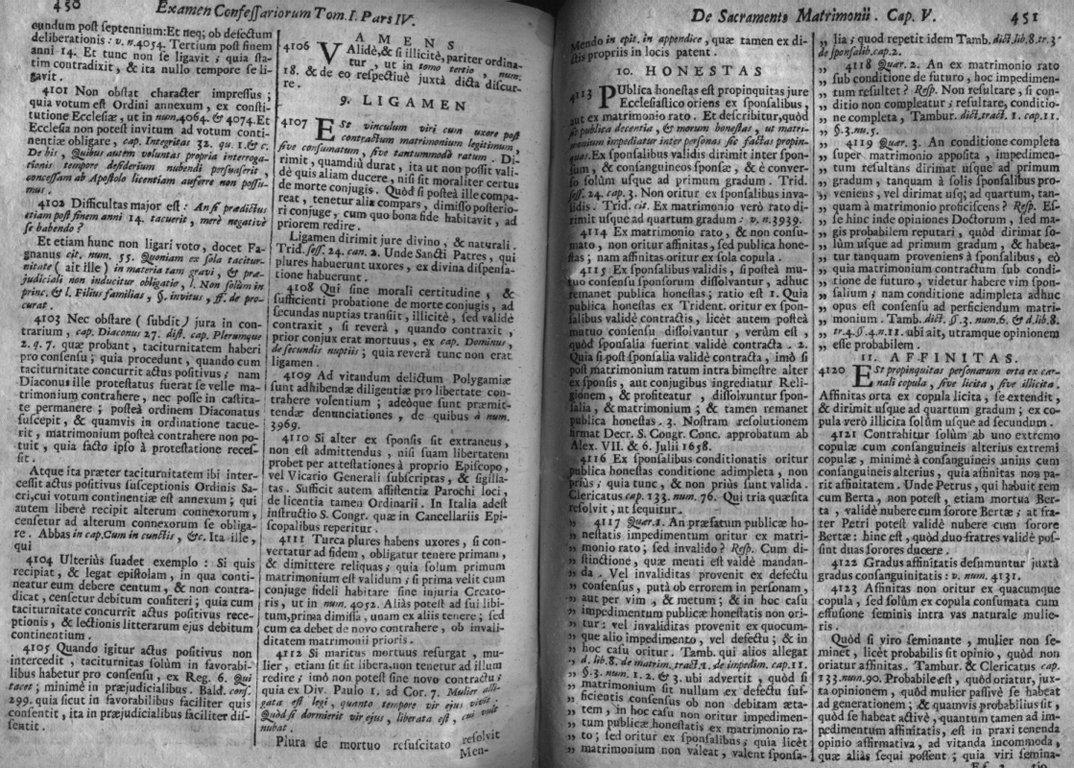 450
Examen Confessariorum Tom. I. Pars IV.
eundum post septennium: Et neq; ob defectum
deliberationis: v. n. 4054. Tertium post finem
anni 14. Et tunc non se ligavit; quia sta-
tim contradixit, & ita nullo tempore se li-
gavit.
4101 Non obstat character impressus;
quia votum est Ordini annexum, ex consti-
tutione Ecclesiæ, ut in num. 4064. & 4074. Et
Ecclesia non potest invitum ad votum conti-
nentiæ obligare, cap. Integritas 32. qu. 1. & c.
De his, Quibus autem voluntas propria interroga-
tionis tempore desiderium nubendi persuaserit,
concessam ab Apostolo licentiam auferre non possu-
mus.
4102 Difficultas major est: An si prædictus
etiam post finem anni 14. tacuerit, merè negativè
se habendo?
Et etiam hunc non ligari voto, docet Fa-
gnanus cit. num. 55. Quoniam ex sola tacitur-
nitate (ait ille) in materia tam gravi, & præ-
judiciali non inducitur obligatio, l. Non solùm in
princ. & l. Filius familias, §. invitus, ff. de pro-
curat.
4103 Nec obstare (subdit) jura in con-
trarium, cap. Diaconus 27. dist. cap. Plerumque
2. q. 7. quæ probant, taciturnitatem haberi
pro consensu; quia procedunt, quando cum
taciturnitate concurrit actus positivus; nam
Diaconus ille protestatus fuerat se velle ma-
trimonium contrahere, nec posse in castita-
te permanere; posteà ordinem Diaconatus
suscepit, & quamvis in ordinatione tacue-
rit, matrimonium posteà contrahere non po-
tuit, quia facto ipso à protestatione reces-
sit.
Atque ita præter taciturnitatem ibi inter-
cessit actus positivus susceptionis Ordinis Sa-
cri, cui votum continentiæ est annexum; qui
autem liberè recipit alterum connexorum,
censetur ad alterum connexorum se obliga-
re. Abbas in cap. Cum in cunctis, &c. Ita ille,
qui
4104 Ulteriùs suadet exemplo: Si quis
recipiat, & legat epistolam, in qua conti-
neatur eum debere centum, & non contra-
dicat, censetur debitum confiteri; quia cum
taciturnitate concurrit actus positivus rece-
ptionis, & lectionis litterarum ejus debitum
continentium.
4105 Quando igitur actus positivus non
intercedit, taciturnitas solùm in favorabi-
libus habetur pro consensu, ex Reg. 6. Qui
tacet; minimè in præjudicialibus. Bald. cons.
299. quia sicut in favorabilibus faciliter quis
consentit, ita in præjudicialibus faciliter dis-
sentit.
AMENS
4106 Validè, & si illicitè, pariter ordina-
tur, ut in tomo tertio, num.
18. & de eo respectivè juxtà dicta discur-
re.
9. LIGAMEN
4107 Est vinculum viri cum uxore post
contractum matrimonium legitimum,
sive consumatum, sive tantummodò ratum. Di-
rimit, quamdiù durat, ita ut non possit vali-
dè quis aliam ducere, nisi sit moraliter certus
de morte conjugis. Quòd si posteà ille compa-
reat, tenetur alia compars, dimisso posterio-
ri conjuge, cum quo bona fide habitavit, ad
priorem redire.
Ligamen dirimit jure divino, & naturali.
Trid. sess. 24. can. 2. Unde Sancti Patres, qui
plures habuerunt uxores, ex divina dispensa-
tione habuerunt.
4108 Qui sine morali certitudine, &
sufficienti probatione de morte conjugis, ad
secundas nuptias transiit, illicitè, sed validè
contraxit, si reverà, quando contraxit,
prior conjux erat mortuus, ex cap. Dominus,
de secundis nuptiis; quia reverà tunc non erat
ligamen.
4109 Ad vitandum delictum Polygamiæ
sunt adhibendæ diligentiæ pro libertate con-
trahere volentium; adeòque sunt præmit-
tendæ denunciationes, de quibus à num.
3969.
4110 Si alter ex sponsis sit extraneus,
non est admittendus, nisi suam libertatem
probet per attestationes à proprio Episcopo,
vel Vicario Generali subscriptas, & sigilla-
tas. Sufficit autem assistentia Parochi loci,
de licentia tamen Ordinarii. In Italia adest
instructio S. Congr. quæ in Cancellariis Epi-
scopalibus reperitur.
4111 Turca plures habens uxores, si con-
vertatur ad fidem, obligatur tenere primam,
& dimittere reliquas; quia solum primum
matrimonium est validum; si prima velit cum
conjuge fideli habitare sine injuria Creato-
ris, ut in num. 4052. Aliàs potest ad sui libi-
tum, prima dimissa, unam ex aliis tenere; sed
cum ea debet de novo contrahere, ob invali-
ditatem matrimonii prioris.
4112 Si maritus mortuus resurgat, mu-
lier, etiam si sit libera, non tenetur ad illum
redire; imò non potest sine novo contractu;
quia ex Div. Paulo 1. ad Cor. 7. Mulier alli-
gata est legi, quanto tempore vir ejus vivit.
Quòd si dormierit vir ejus, liberata est, cui vult
nubat.
Plura de mortuo resuscitato resolvit
Men-
De Sacramento Matrimonii. Cap. V.
451
Mendo in epit. in appendice, quæ tamen ex di-
ctis propriis in locis patent.
10. HONESTAS
4113 Publica honestas est propinquitas jure
Ecclesiastico oriens ex sponsalibus,
aut ex matrimonio rato. Et describitur, quòd
sit publica decentia, & morum honestas, ut matri-
monium impediatur inter personas sic factas propin-
quas. Ex sponsalibus validis dirimit inter spon-
sum, & consanguineos sponsæ, & è conver-
so solùm usque ad primum gradum. Trid.
sess. 24. cap. 3. Non oritur ex sponsalibus inva-
lidis. Trid. cit. Ex matrimonio verò rato di-
rimit usque ad quartum gradum: v. n. 3939.
4114 Ex matrimonio rato, & non consu-
mato, non oritur affinitas, sed publica hone-
stas; nam affinitas oritur ex sola copula.
4115 Ex sponsalibus validis, si posteà mu-
tuo consensu sponsorum dissolvantur, adhuc
remanet publica honestas; ratio est 1. Quia
publica honestas ex Trident. oritur ex spon-
salibus validè contractis, licèt autem posteà
mutuo consensu dissolvantur, verùm est,
quòd sponsalia fuerint validè contracta. 2.
Quia si post sponsalia validè contracta, imò si
post matrimonium ratum intra bimestre alter
ex sponsis, aut conjugibus ingrediatur Reli-
gionem, & profiteatur, dissolvuntur spon-
salia, & matrimonium; & tamen remanet
publica honestas. 3. Nostram resolutionem
firmat Decr. S. Congr. Conc. approbatum ab
Alex. VII. & 6. Julii 1658.
4116 Ex sponsalibus conditionatis oritur
publica honestas conditione adimpleta, non
priùs; quia tunc, & non priùs sunt valida.
Clericatus cap. 133. num. 76. Qui tria quæsita
resolvit, ut sequitur.
„ 4117 Quær. 1. An præfatum publicæ ho-
„ nestatis impedimentum oritur ex matri-
„ monio rato; sed invalido? Resp. Cum di-
„ stinctione, quæ menti est validè mandan-
„ da. Vel invaliditas provenit ex defectu
„ consensus, putà ob errorem in personam,
„ aut per vim, & metum; & in hoc casu
„ impedimentum publicæ honestatis non ori-
„ tur: vel invaliditas provenit ex quocum-
„ que alio impedimento, vel defectu; & in
„ hoc casu oritur. Tamb. qui alios allegat
„ d. lib. 8. de matrim. tract. 1. de impedim. cap. 11.
„ §. 3. num. 1. 2. & 3. ubi advertit, quòd si
„ matrimonium sit nullum ex defectu suf-
„ ficientis consensus ob non debitam æta-
„ tem, in hoc casu non oritur impedimen-
„ tum publicæ honestatis ex matrimonio ra-
„ to; sed oritur ex sponsalibus; quia licèt
„ matrimonium non valeat, valent sponsa-
„ lia; quod repetit idem Tamb. dict. lib. 8. tr. 3.
„ de sponsalib. cap. 2.
„ 4118 Quær. 2. An ex matrimonio rato
„ sub conditione de futuro, hoc impedimen-
„ tum resultet? Resp. Non resultare, si con-
„ ditio non compleatur; resultare, conditio-
„ ne completa, Tambur. dict. tract. 1. cap. 11.
„ §. 3. nu. 5.
„ 4119 Quær. 3. An conditione completa
„ super matrimonio apposita, impedimen-
„ tum resultans dirimat usque ad primum
„ gradum, tanquam à solis sponsalibus pro-
„ veniens, vel dirimat usq; ad quartum, tan-
„ quam à matrimonio proficiscens? Resp. Es-
„ se hinc inde opiniones Doctorum, sed ma-
„ gis probabilem reputari, quòd dirimat so-
„ lùm usque ad primum gradum, & habea-
„ tur tanquam proveniens à sponsalibus, eò
„ quia matrimonium contractum sub condi-
„ tione de futuro, videtur habere vim spon-
„ salium; nam conditione adimpleta adhuc
„ opus est consensu ad perficiendum matri-
„ monium. Tamb. dict. §. 3. num. 6. & d. lib. 8.
„ tr. 4. §. 4. n. 11. ubi ait, utramque opinionem
„ esse probabilem.
11. AFFINITAS.
4120 Est propinquitas personarum orta ex car-
nali copula, sive licita, sive illicita.
Affinitas orta ex copula licita, se extendit,
& dirimit usque ad quartum gradum; ex co-
pula verò illicita solùm usque ad secundum.
4121 Contrahitur solùm ab uno extremo
copulæ cum consanguineis alterius extremi
copulæ, minimè à consanguineis unius cum
consanguineis alterius, quia affinitas non pa-
rit affinitatem. Unde Petrus, qui habuit rem
cum Berta, non potest, etiam mortua Ber-
ta, validè nubere cum sorore Bertæ; at fra-
ter Petri potest validè nubere cum sorore
Bertæ: hinc est, quòd duo fratres validè pos-
sint duas sorores ducere.
4122 Gradus affinitatis desumuntur juxtà
gradus consanguinitatis: v. num. 4131.
4123 Affinitas non oritur ex quacumque
copula, sed solùm ex copula consumata cum
effusione seminis intra vas naturale mulie-
ris.
Quòd si viro seminante, mulier non se-
minet, licèt probabilis sit opinio, quòd non
oriatur affinitas. Tambur. & Clericatus cap.
133. num. 90. Probabile est, quòd oriatur, jux-
ta opinionem, quòd mulier passivè se habeat
ad generationem; & quamvis probabilius sit,
quòd se habeat activè, quantum tamen ad im-
pedimentum affinitatis, est in praxi tenenda
opinio affirmativa, ad vitanda incommoda,
quæ aliàs sequi possent; quia viri semina-